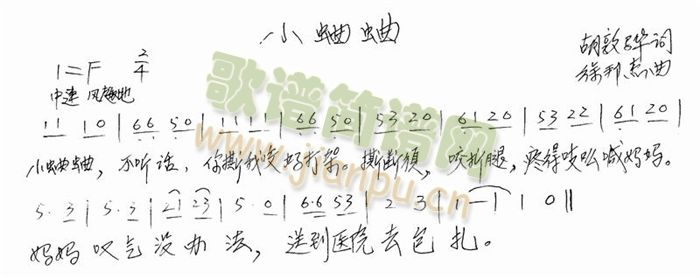 小蛐蛐
1=F 2/4
胡敦骅词
徐邦杰曲
中速 风趣地
歌谱简谱网
www.jianpu.cn
11 10 | 66 50 | 11 11 | 66 50 | 53 20 | 61 20 | 53 22 | 61 20 |
小蛐蛐，不听话，你撕我咬好打架。撕断须，咬折腿，疼得吱吆喊妈妈。
5·3 | 5·3 | 21 23 | 5·0 | 6·6 53 | 2 3 | 1 - | 1 0 ||
妈妈叹气没办法，送到医院去包扎。